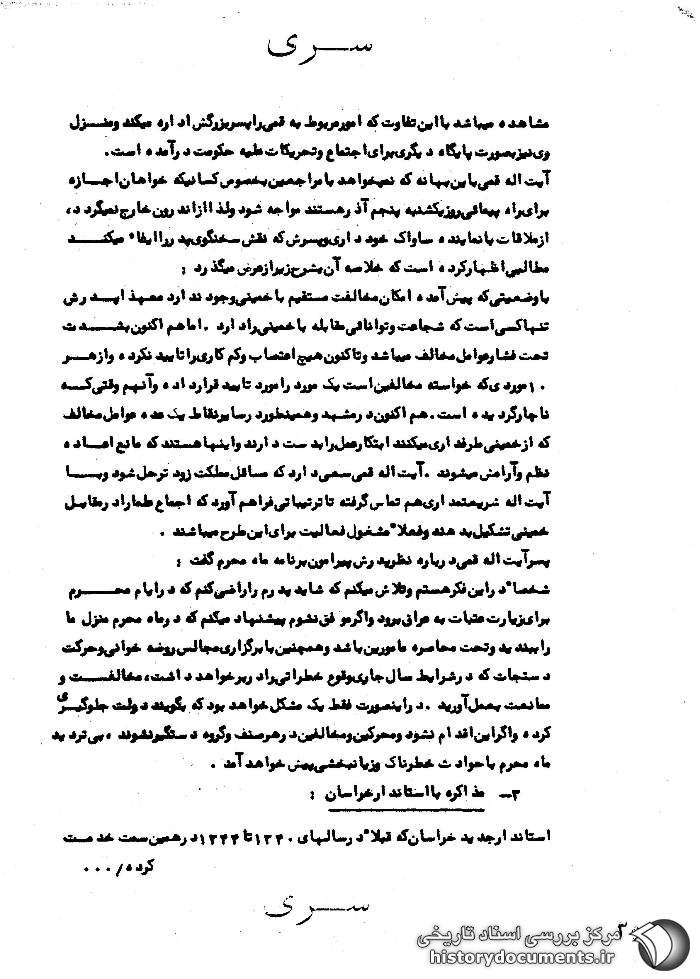 سری
مشاهده میباشد با این تفاوت که امور مربوط به قمی را پسر بزرگش اداره میکند و منزل
وی نیز بصورت پایگاه دیگری برای اجتماع و تحریکات علیه حکومت درآمده است.
آیت اله قمی با این بهانه که نمیخواهد با مراجعین بخصوص کسانیکه خواهان اجازه
برای راه پیمائی روز یکشنبه پنجم آذر هستند مواجه شود ولذا از اندرون خارج نمیگردد،
از ملاقات با نماینده ساواک خودداری و پسرش که نقش سخنگوی پدر را ایفاء میکند
مطالبی اظهار کرده است که خلاصه آن بشرح زیر از عرض میگذرد :
با وضعیتی که پیش آمده امکان مخالفت مستقیم با خمینی وجود ندارد معهذا پدرش
تنها کسی است که شجاعت و توانائی مقابله با خمینی را دارد . اما هم اکنون بشدت
تحت فشار عوامل مخالف میباشد و تاکنون هیچ اعتصاب و کم کاری را تایید نکرده و از هر
۱۰ موردی که خواسته مخالفین است یک مورد را مورد تایید قرار داده و آنهم وقتی که
ناچار گردیده است. هم اکنون در مشهد و همینطور در سایر نقاط یک عده عوامل مخالف
که از خمینی طرفداری میکنند ابتکار عمل را بدست دارند و اینها هستند که مانع اعاده
نظم و آرامش میشوند . آیت اله قمی سعی دارد که مسائل مملکت زودتر حل شود و با
آیت اله شریعتمداری هم تماس گرفته تا ترتیباتی فراهم آورد که اجماع علما را در مقابل
خمینی تشکیل بدهند و فعلا" مشغول فعالیت برای این طرح میباشند .
پسر آیت اله قمی درباره نظر پدرش پیرامون برنامه ماه محرم گفت :
شخصا" در این فکر هستم و تلاش میکنم که شاید پدرم را راضی کنم که در ایام محرم
برای زیارت عتبات به عراق برود و اگر موفق نشوم پیشنهاد میکنم که در ماه محرم منزل ما
را ببندید و تحت محاصره مامورین باشد و همچنین با برگزاری مجالس روضه خوانی و حرکت
دستجات که در شرایط سال جاری وقوع خطراتی را در بر خواهد داشت، مخالفت و
ممانعت بعمل آورید . در اینصورت فقط یک مشکل خواهد بود که بگویند دولت جلوگیری
کرده و اگر این اقدام نشود و محرکین و مخالفین در هر صنف و گروه دستگیر نشوند ، بی تردید
ماه محرم با حوادث خطرناک و زیانبخشی پیش خواهد آمد .
۳- مذاکره با استاندار خراسان :
استاندار جدید خراسان که قبلا" در سالهای ۱۳۴۰ تا ۱۳۴۴ در همین سمت خدمت
کرده / ۰۰۰
سری
۳
مرکز بررسی اسناد تاریخی
historydocuments.ir